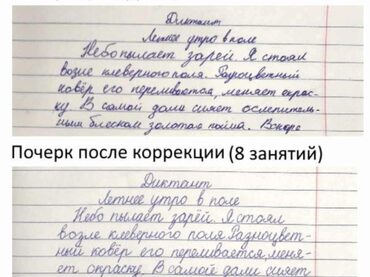 Диктант
Летнее утро в поле
Небо пылает зарёй. Я стоял
возле клеверного поля. Разроцветный
ковёр его перемивается, меняет окрас-
ку. В самой дали сияет ослепитель-
ным блеском золотая пойма. Вскоре
Почерк после коррекции (8 занятий)
Диктант
Летнее утро в поле
Небо пылает зарёй. Я стоял
возле клеверного поля. Разноцвет-
ный ковёр его перемивается, меня-
ет окраску. В самой дали сияет